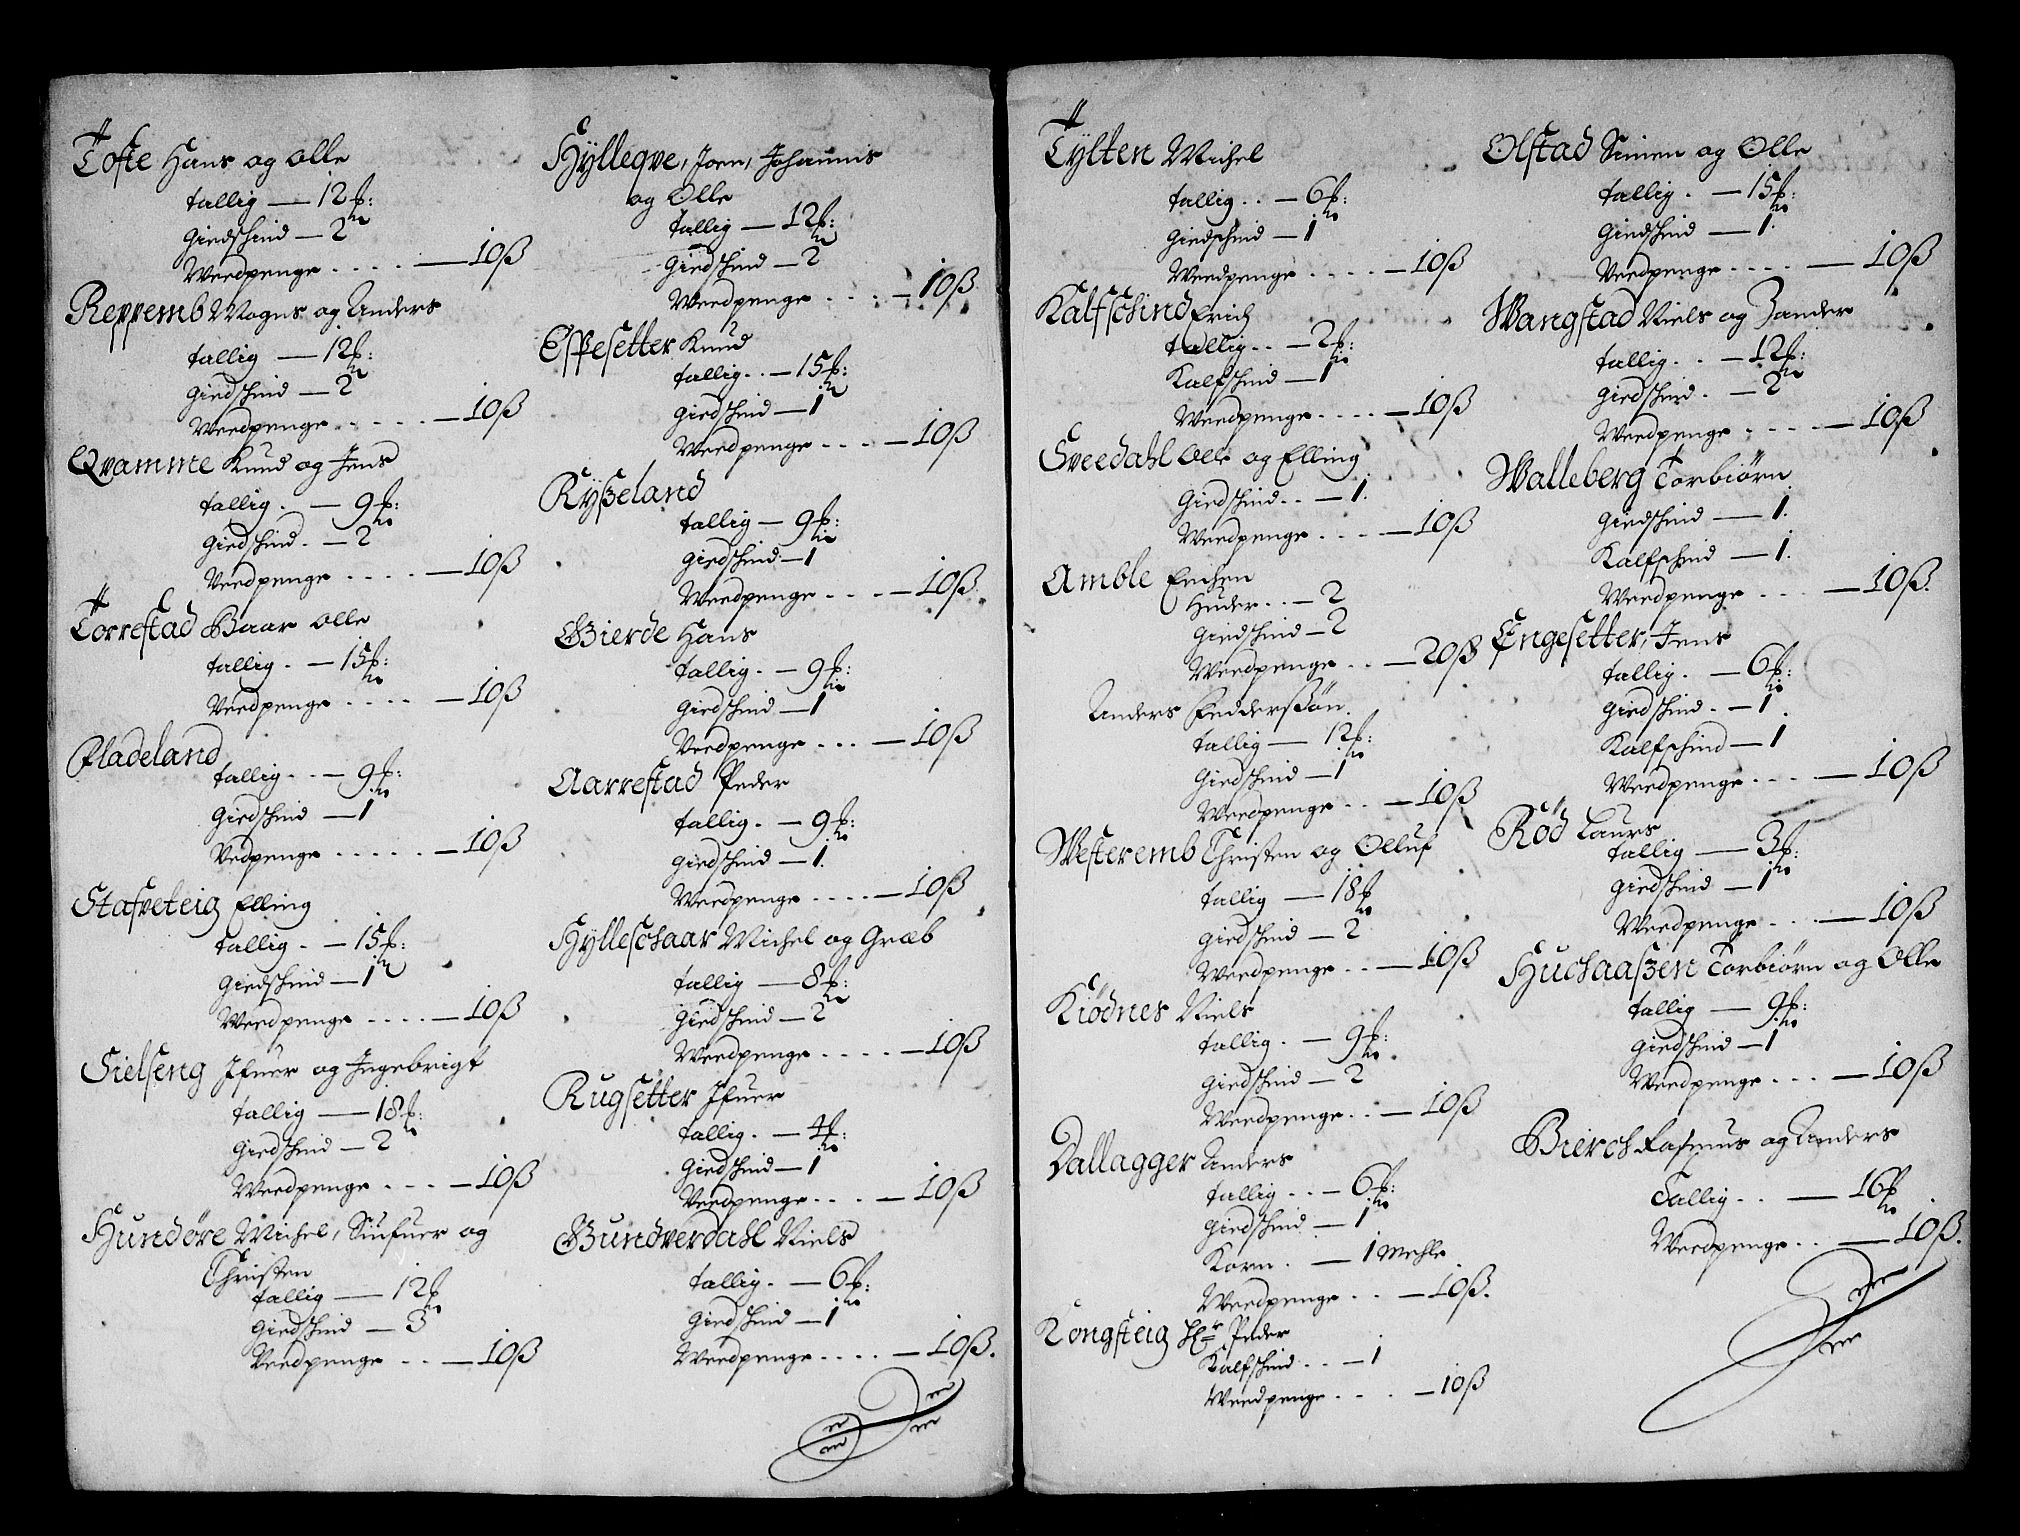 Tofte Hans og Olle
tallig — 12 ℔:
Giedschind — 2
Weedpenge . . . . — 10 ß
Reppemb Mogns og Anders
tallig — 12 ℔:
Giedschind — 2
Weedpenge . . . . . — 10 ß
Qvamme Knud og Jens
tallig . — 9 ℔:
Giedschind . — 2
Weedpenge . . . . — 10 ß
Torrestad Baar Olle
tallig . — 15 ℔:
Weedpenge . . . . — 10 ß
Fladeland
tallig . . — 9 ℔:
Giedschind — 1
Vedpenge . . . . . — 10 ß
Stafveteig Elling
tallig . — 15 ℔:
Giedschind — 1
Weedpenge . . . . — 10 ß
Sielseng Ifuer og Ingebrigt
tallig — 18 ℔:
Giedschind — 2
Weedpenge . . . — 10 ß
Hundøre Michel, Siufuer og
Christen
tallig — 12 ℔
Giedschind — 3
Weedpenge . . — 10 ß
Hylleqve, Joen, Johannis
og Olle
tallig — 12 ℔:
Giedschind — 2
Weedpenge . . . — 10 ß
Espesetter Knud
tallig . . — 15 ℔:
Giedschind — 1
Weedpenge . . . — 10 ß
Ryszeland
tallig — 9 ℔:
Giedschind — 1
Weedpenge . . . — 10 ß
Gierde Hans
tallig . — 9 ℔:
Giedschind — 1
Weedpenge . . . — 10 ß
Aarrestad Peder
tallig . — 9 ℔:
Giedschind — 1
Weedpenge . . . . — 10 ß
Hylleschaar Michel og Græb
tallig — 8 ℔:
Giedschind — 2
Weedpenge . . . . — 10 ß
Rugsetter Ifuer
tallig . — 4 ℔:
Giedschind — 1
Weedpenge . . . — 10 ß
Gundverdahl Niels
tallig . — 6 ℔:
Giedschind — 1
Weedpenge . . . . — 10 ß.
Tylten Michel
tallig . . — 6 ℔:
Giedschind — 1
Weedpenge . . . . — 10 ß
Kalfschind Erich
tallig . . — 2 ℔:
Kalfschind — 1
Weedpenge . . . . — 10 ß
Sveedahl Ole og Elling
Giedschind . . — 1.
Weedpenge . . . . — 10 ß
Amble Enchen
Huder . . — 2
Giedschind — 2
Weedpenge . . — 20 ß
Anders Pedderßøn
tallig — 12 ℔:
Giedschind — 1
Weedpenge . . — 10 ß
Westeremb Christen og Olluf
tallig — 18 ℔
Giedschind — 2
Weedpenge . . — 10 ß
Kiødnes Niels
tallig . — 9 ℔:
Giedschind — 2
Weedpenge . . — 10 ß
Dallagger Anders
tallig . . — 6 ℔:
Giedschind — 1
Korn . — 1 Mehle
Weedpenge . . — 10 ß.
Kongsteig Hr Peder
Kalfschind . . — 1
Weedpenge . . . — 10 ß
Olstad Simen og Olle
tallig . — 15 ℔:
Giedschind — 1.
Weedpenge . . . . — 10 ß
Wangstad Niels og Zander
tallig . . — 12 ℔:
Giedschind . — 2
Weedpenge . . . . — 10 ß
Walleberg Torbiørn
Giedschind — 1.
Kalfschind — 1.
Weedpenge . . . — 10 ß.
Engesetter, Jens
tallig . — 6 ℔:
Giedschind . — 1
Kalfschind — 1
Weedpenge . . . — 10 ß
Rød Laurs
tallig — 3 ℔:
Giedschind — 1
Weedpenge . . . — 10 ß
Huchaaszen Torbiørn og Olle
tallig — 9 ℔:
Giedschind — 1
Weedpenge . . . — 10 ß
Bierch Rasmus og Anders
Tallig . . — 16 ℔
Weedpenge . . — 10 ß.